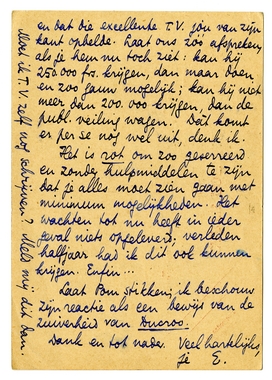 en dat die excellente T.V. jou van zijn
kant opbelde. Laat ons zoo afspreken,
als je hem nu toch ziet: kan hij
250.000 frs. krijgen, dan maar doen,
en zoo gauw mogelijk; kan hij niet
meer dan 200.000 krijgen, dan de
publ. veiling wagen. Dàt komt
er per se nog wel uit, denk ik.
Het is rot om zoo geserreerd
en zonder hulpmiddelen te zijn
dat je alles moet zien gaan met
minimum mogelijkheden. Het
wachten tot nu heeft in ieder
geval niets opgeleverd; verleden
halfjaar had ik dit ook kunnen
krijgen. Enfin...
Laat Pom stikken; ik beschouw
zijn reactie als een bewijs van de
zuiverheid van Ducroo.
Dank en tot nader. Veel hartelijks,
je E.
Moet ik T.V. zelf nog schrijven? Meld mij dit dan.